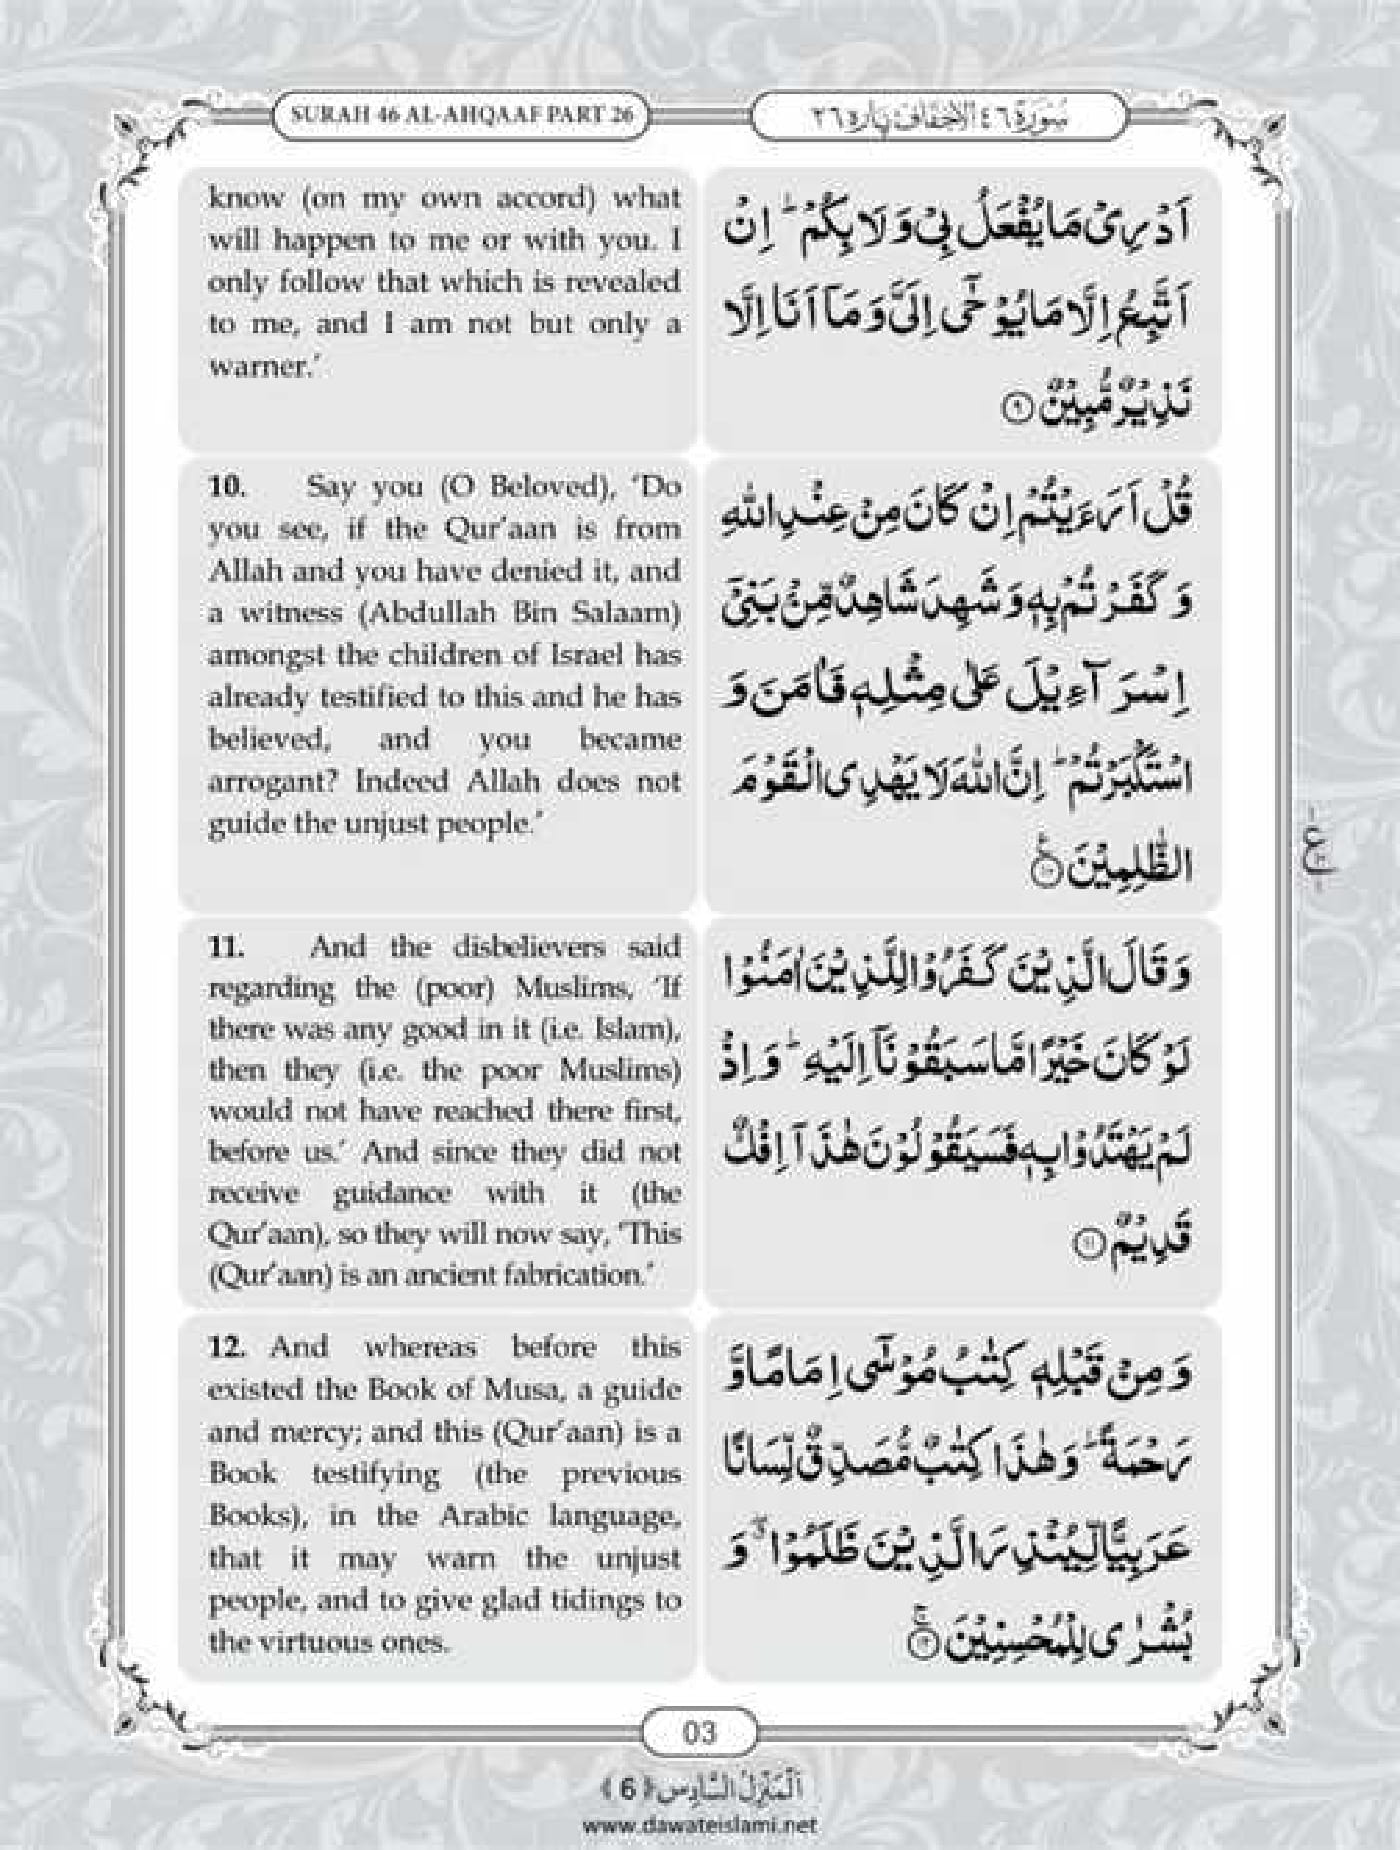 SURAH 46 AL-AHQAAF PART 26
سُوْرَة ٤٦ الاحقاف پاره ٢٦
know (on my own accord) what
will happen to me or with you. I
only follow that which is revealed
to me, and I am not but only a
warner.’
اَدْرِیْ مَا یُفْعَلُ بِیْ وَ لَا بِكُمْ ؕ اِنْ
اَتَّبِعُ اِلَّا مَا یُوْحٰۤى اِلَیَّ وَ مَاۤ اَنَا اِلَّا
نَذِیْرٌ مُّبِیْنٌ ۹
10. Say you (O Beloved), ‘Do
you see, if the Qur’aan is from
Allah and you have denied it, and
a witness (Abdullah Bin Salaam)
amongst the children of Israel has
already testified to this and he has
believed, and you became
arrogant? Indeed Allah does not
guide the unjust people.’
قُلْ اَرَءَیْتُمْ اِنْ كَانَ مِنْ عِنْدِ اللّٰهِ
وَ كَفَرْتُمْ بِهٖ وَ شَهِدَ شَاهِدٌ مِّنْۢ بَنِیْۤ
اِسْرَآءِیْلَ عَلٰى مِثْلِهٖ فَاٰمَنَ وَ
اسْتَكْبَرْتُمْ ؕ اِنَّ اللّٰهَ لَا یَهْدِی الْقَوْمَ
الظّٰلِمِیْنَ ۱۰
ع
11. And the disbelievers said
regarding the (poor) Muslims, ‘If
there was any good in it (i.e. Islam),
then they (i.e. the poor Muslims)
would not have reached there first,
before us.’ And since they did not
receive guidance with it (the
Qur’aan), so they will now say, ‘This
(Qur’aan) is an ancient fabrication.’
وَ قَالَ الَّذِیْنَ كَفَرُوْا لِلَّذِیْنَ اٰمَنُوْا
لَوْ كَانَ خَیْرًا مَّا سَبَقُوْنَاۤ اِلَیْهِ ؕ وَ اِذْ
لَمْ یَهْتَدُوْا بِهٖ فَسَیَقُوْلُوْنَ هٰذَاۤ اِفْكٌ
قَدِیْمٌ ۱۱
12. And whereas before this
existed the Book of Musa, a guide
and mercy; and this (Qur’aan) is a
Book testifying (the previous
Books), in the Arabic language,
that it may warn the unjust
people, and to give glad tidings to
the virtuous ones.
وَ مِنْ قَبْلِهٖ كِتٰبُ مُوْسٰۤى اِمَامًا وَّ
رَحْمَةً ؕ وَ هٰذَا كِتٰبٌ مُّصَدِّقٌ لِّسَانًا
عَرَبِیًّا لِّیُنْذِرَ الَّذِیْنَ ظَلَمُوْا ۖۗ وَ
بُشْرٰى لِلْمُحْسِنِیْنَ ۱۲
03
اَلْمَنْزِلُ السَّادِس ﴿6﴾
www.dawateislami.net